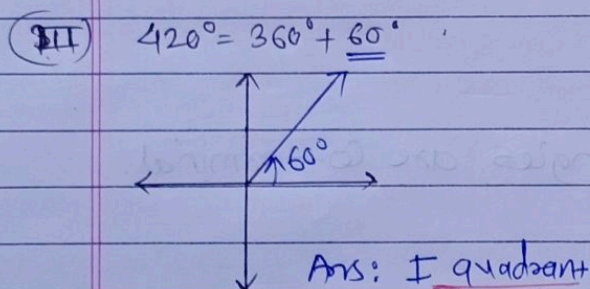 III) 420° = 360° + 60°
60°
Ans: I quadrant